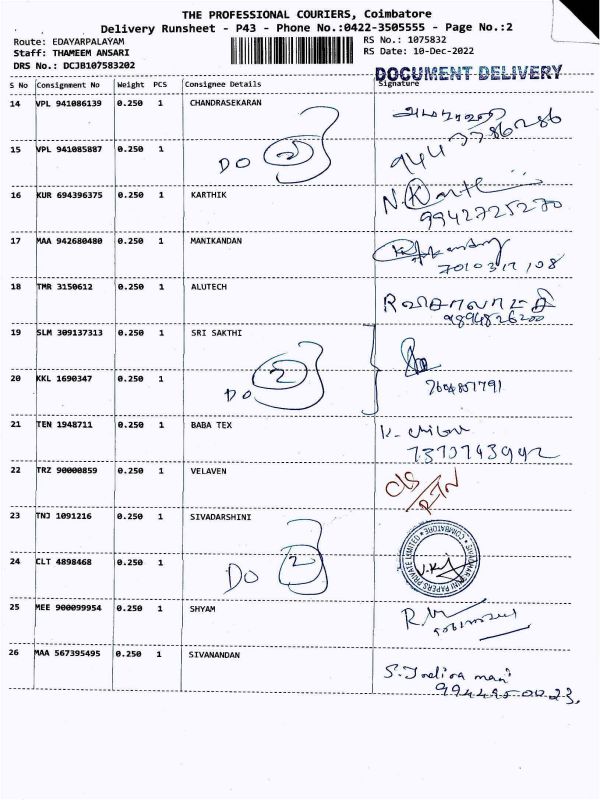 THE PROFESSIONAL COURIERS, Coimbatore
Delivery Runsheet - P43 - Phone No.:0422-3505555 - Page No.:2
Route: EDAYARPALAYAM RS No.: 1075832
Staff: THAMEEM ANSARI RS Date: 10-Dec-2022
DRS No.: DCJB107583202
DOCUMENT DELIVERY
S No Consignment No Weight PCS Consignee Details Signature
14 VPL 941086139 0.250 1 CHANDRASEKARAN
15 VPL 941085887 0.250 1 DO 2
16 KUR 694396375 0.250 1 KARTHIK
9942725270
17 MAA 942680480 0.250 1 MANIKANDAN
18 TMR 3150612 0.250 1 ALUTECH
9894826200
19 SLM 309137313 0.250 1 SRI SAKTHI
20 KKL 1690347 0.250 1 DO 2
21 TEN 1948711 0.250 1 BABA TEX
22 TRZ 90000859 0.250 1 VELAVEN
23 TNJ 1091216 0.250 1 SIVADARSHINI
24 CLT 4898468 0.250 1 DO 2
PAPERS PRIVATE LIMITED * COIMBATORE
25 MEE 900099954 0.250 1 SHYAM
26 MAA 567395495 0.250 1 SIVANANDAN